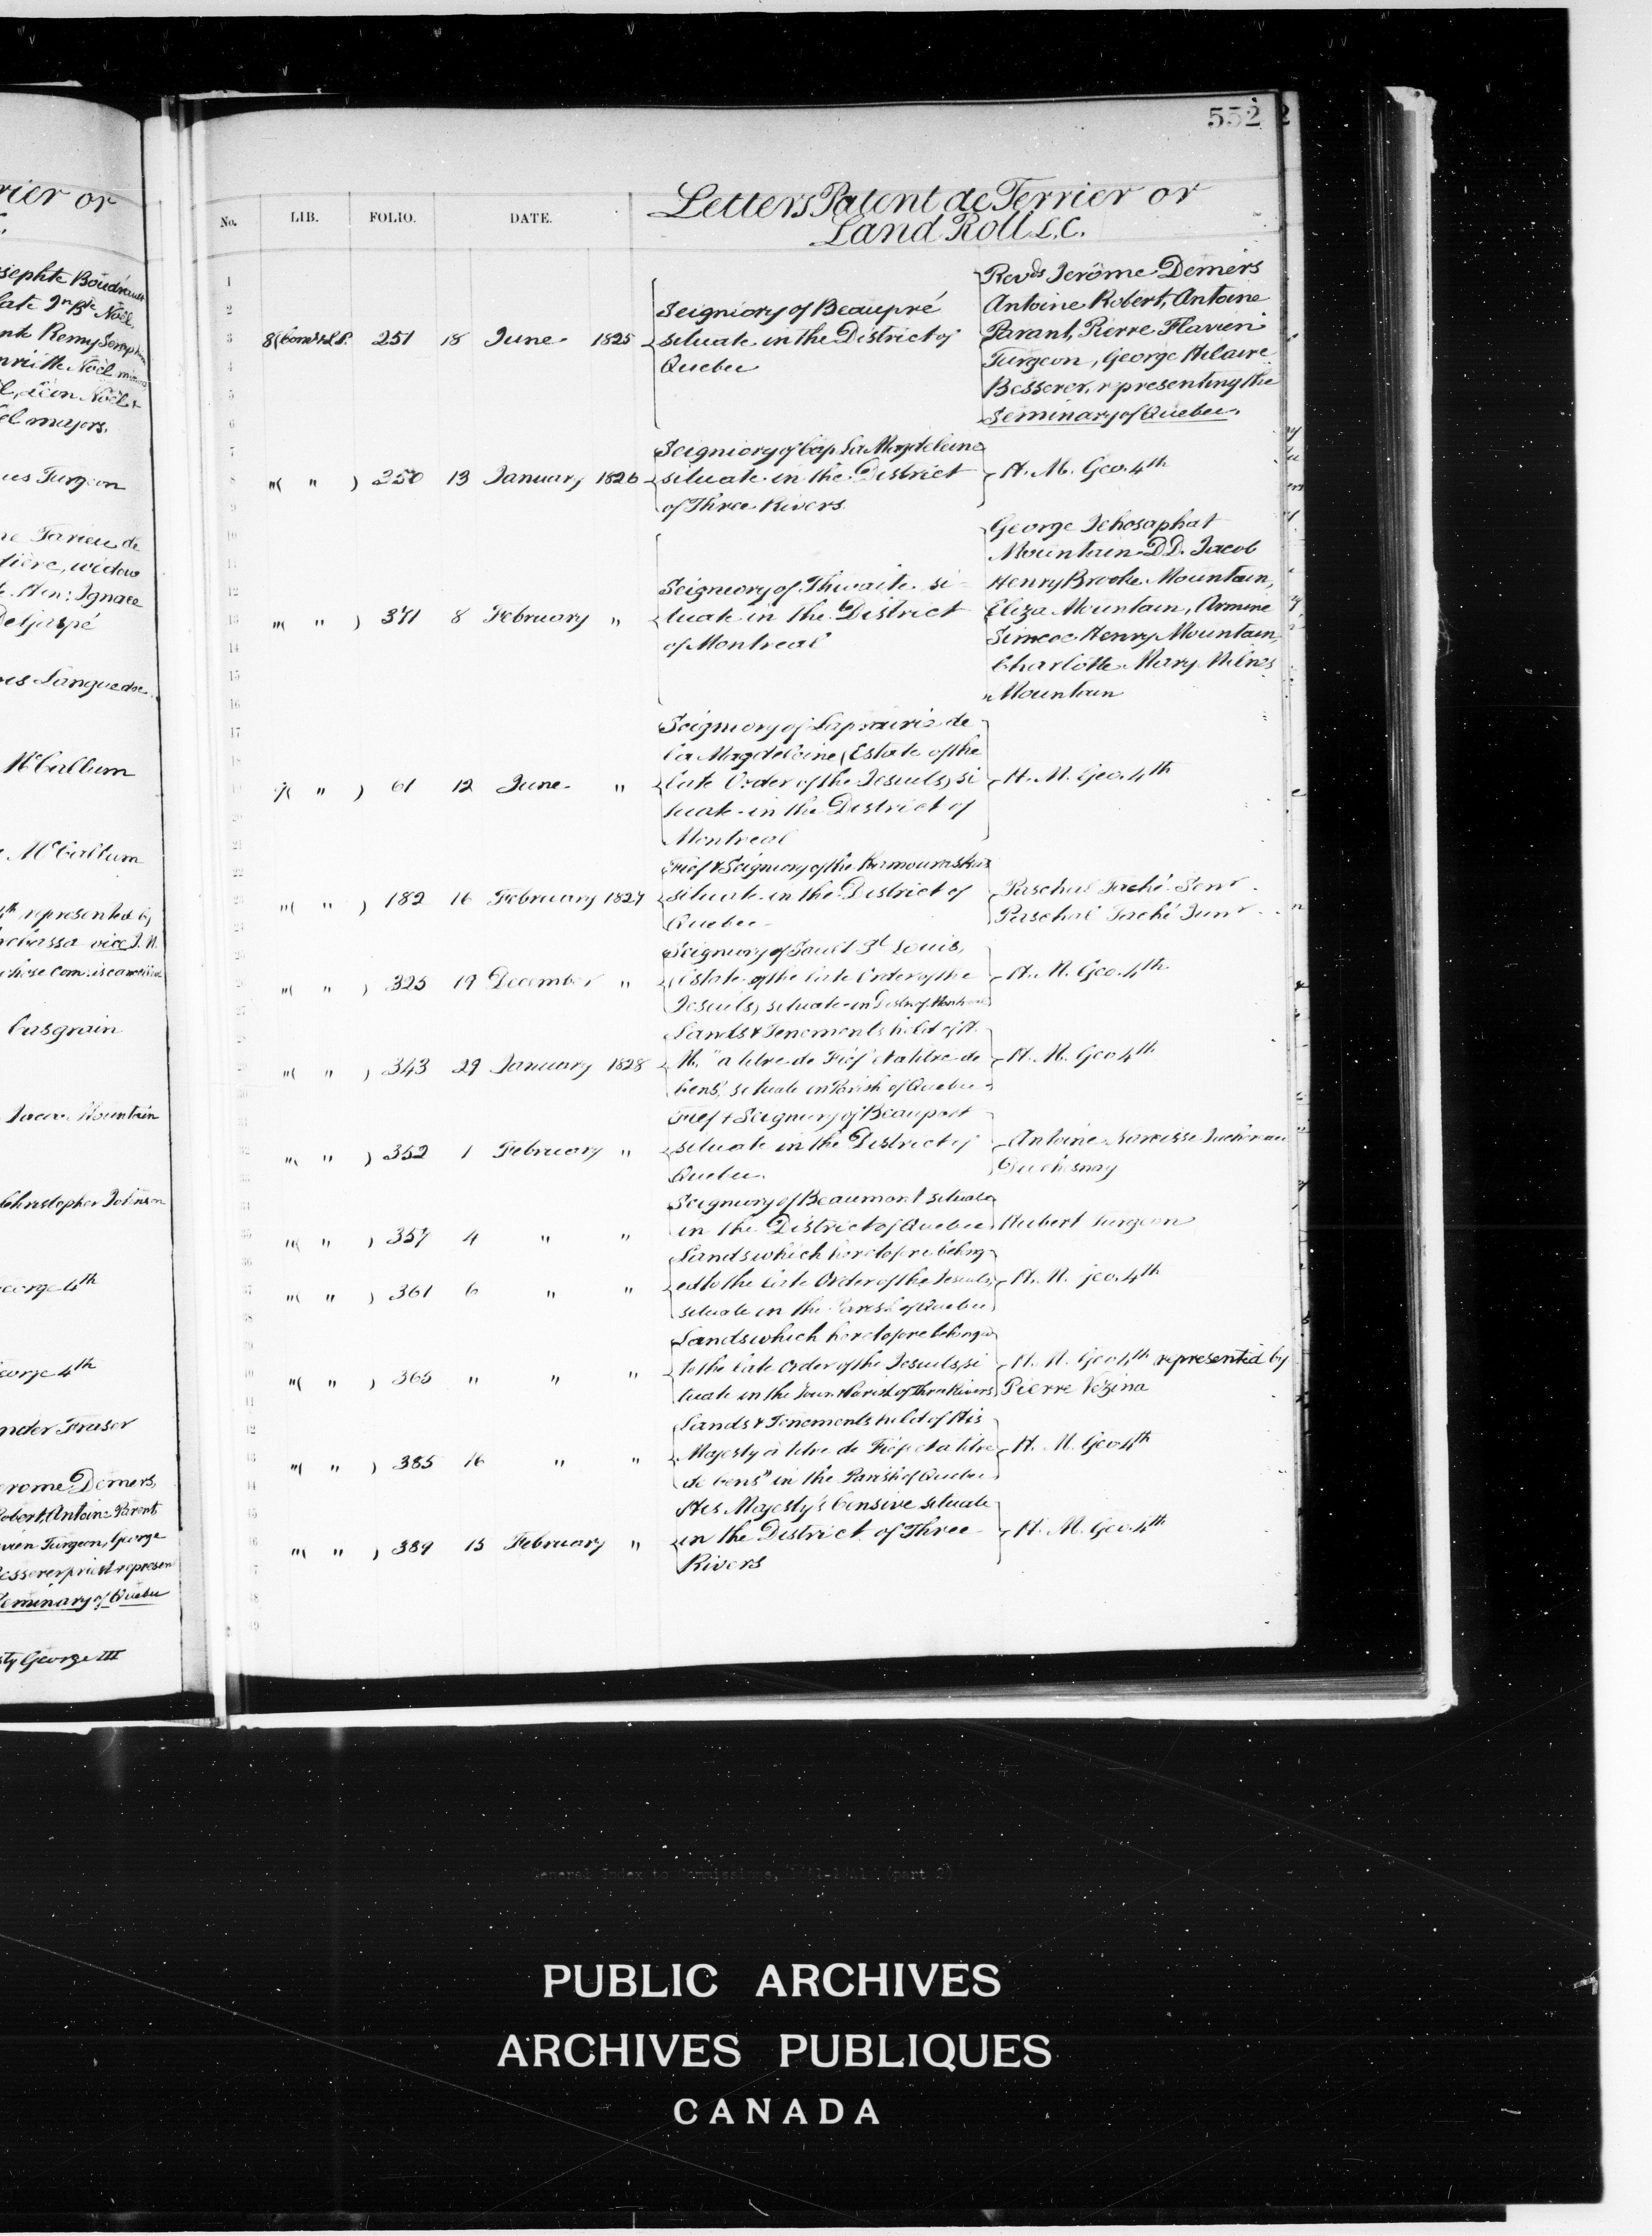 552
rier or
sephte Boudreault
late Jn Bte Noël,
and Remy Seraphin
nriette Noël minors
el majors.
ues Turgeon
ne Tarieu de
dière, widow
Ignace
DeGaspé
Languedoc
McCallum
McCallum
4th represented by
vice J. N.
whose com. is cancelled
Casgrain
Jacob Mountain
Christopher Johnson
eorge 4th
eorge 4th
nder Fraser
erome Demers,
Robert, Antoine Parent
vien Turgeon, George
Besserer priest represen
Seminary of Quebec
sty George III
No. LIB. FOLIO. DATE. Letters Patent de Terrier or
Land Roll L.C.
Revds Jerôme Demers
Antoine Robert, Antoine
Seigniory of Beaupré
Parant, Pierre Flavien
8 (Com: & L.P. 251 18 June 1825 situate in the District of
Turgeon, George Hilaire
Quebec
Besserer, representing the
Seminary of Quebec.
Seigniory of Cap La Magdeleine
"( " ) 350 13 January 1826 situate in the District H. M. Geo. 4th
of Three Rivers
George Jehosaphat
Mountain D.D. Jacob
Seigniory of Thwaite si- Henry Brooke Mountain,
"( " ) 371 8 February " tuate in the District Eliza Mountain, Armine
of Montreal Simcoe Henry Mountain,
Charlotte Mary Milnes
Mountain
Seigniory of Laprairie de
la Magdeleine (Estate of the
9( " ) 61 12 June " late Order of the Jesuits) si H. M. Geo. 4th
tuate in the District of
Montreal
Fief & Seigniory of the Kamouraska
"( " ) 182 16 February 1827 situate in the District of Paschal Taché Senr
Quebec Paschal Taché Junr
Seigniory of Sault St Louis,
"( " ) 325 19 December " (Estate of the late Order of the H. M. Geo. 4th
Jesuits) situate in Distr. of Montreal
Lands & Tenements held of H.
"( " ) 343 29 January 1828 M. "a titre de Fief et a titre de H. M. Geo 4th
Cens", situate in Parish of Quebec
Fief & Seigniory of Beauport
"( " ) 352 1 February " situate in the District of Antoine Narcisse Juchereau
Quebec. Duchesnay
Seigniory of Beaumont situate
"( " ) 357 4 " " in the District of Quebec Hubert Turgeon
Lands which heretofore belong-
"( " ) 361 6 " " ed to the late Order of the Jesuits, H. M. Geo. 4th
situate in the Parish of Quebec
Lands which heretofore belonged
"( " ) 365 " " " to the late Order of the Jesuits, si H. M. Geo 4th represented by
tuate in the Town & Parish of Three Rivers Pierre Vézina
Lands & Tenements held of His
"( " ) 385 16 " " Majesty à titre de Fief et a titre H. M. Geo 4th
de Cens" in the Parish of Quebec
His Majesty's Censive situate
"( " ) 389 15 February " in the District of Three H. M. Geo. 4th
Rivers
General Index to Commissions, (part 2)
PUBLIC ARCHIVES
ARCHIVES PUBLIQUES
CANADA